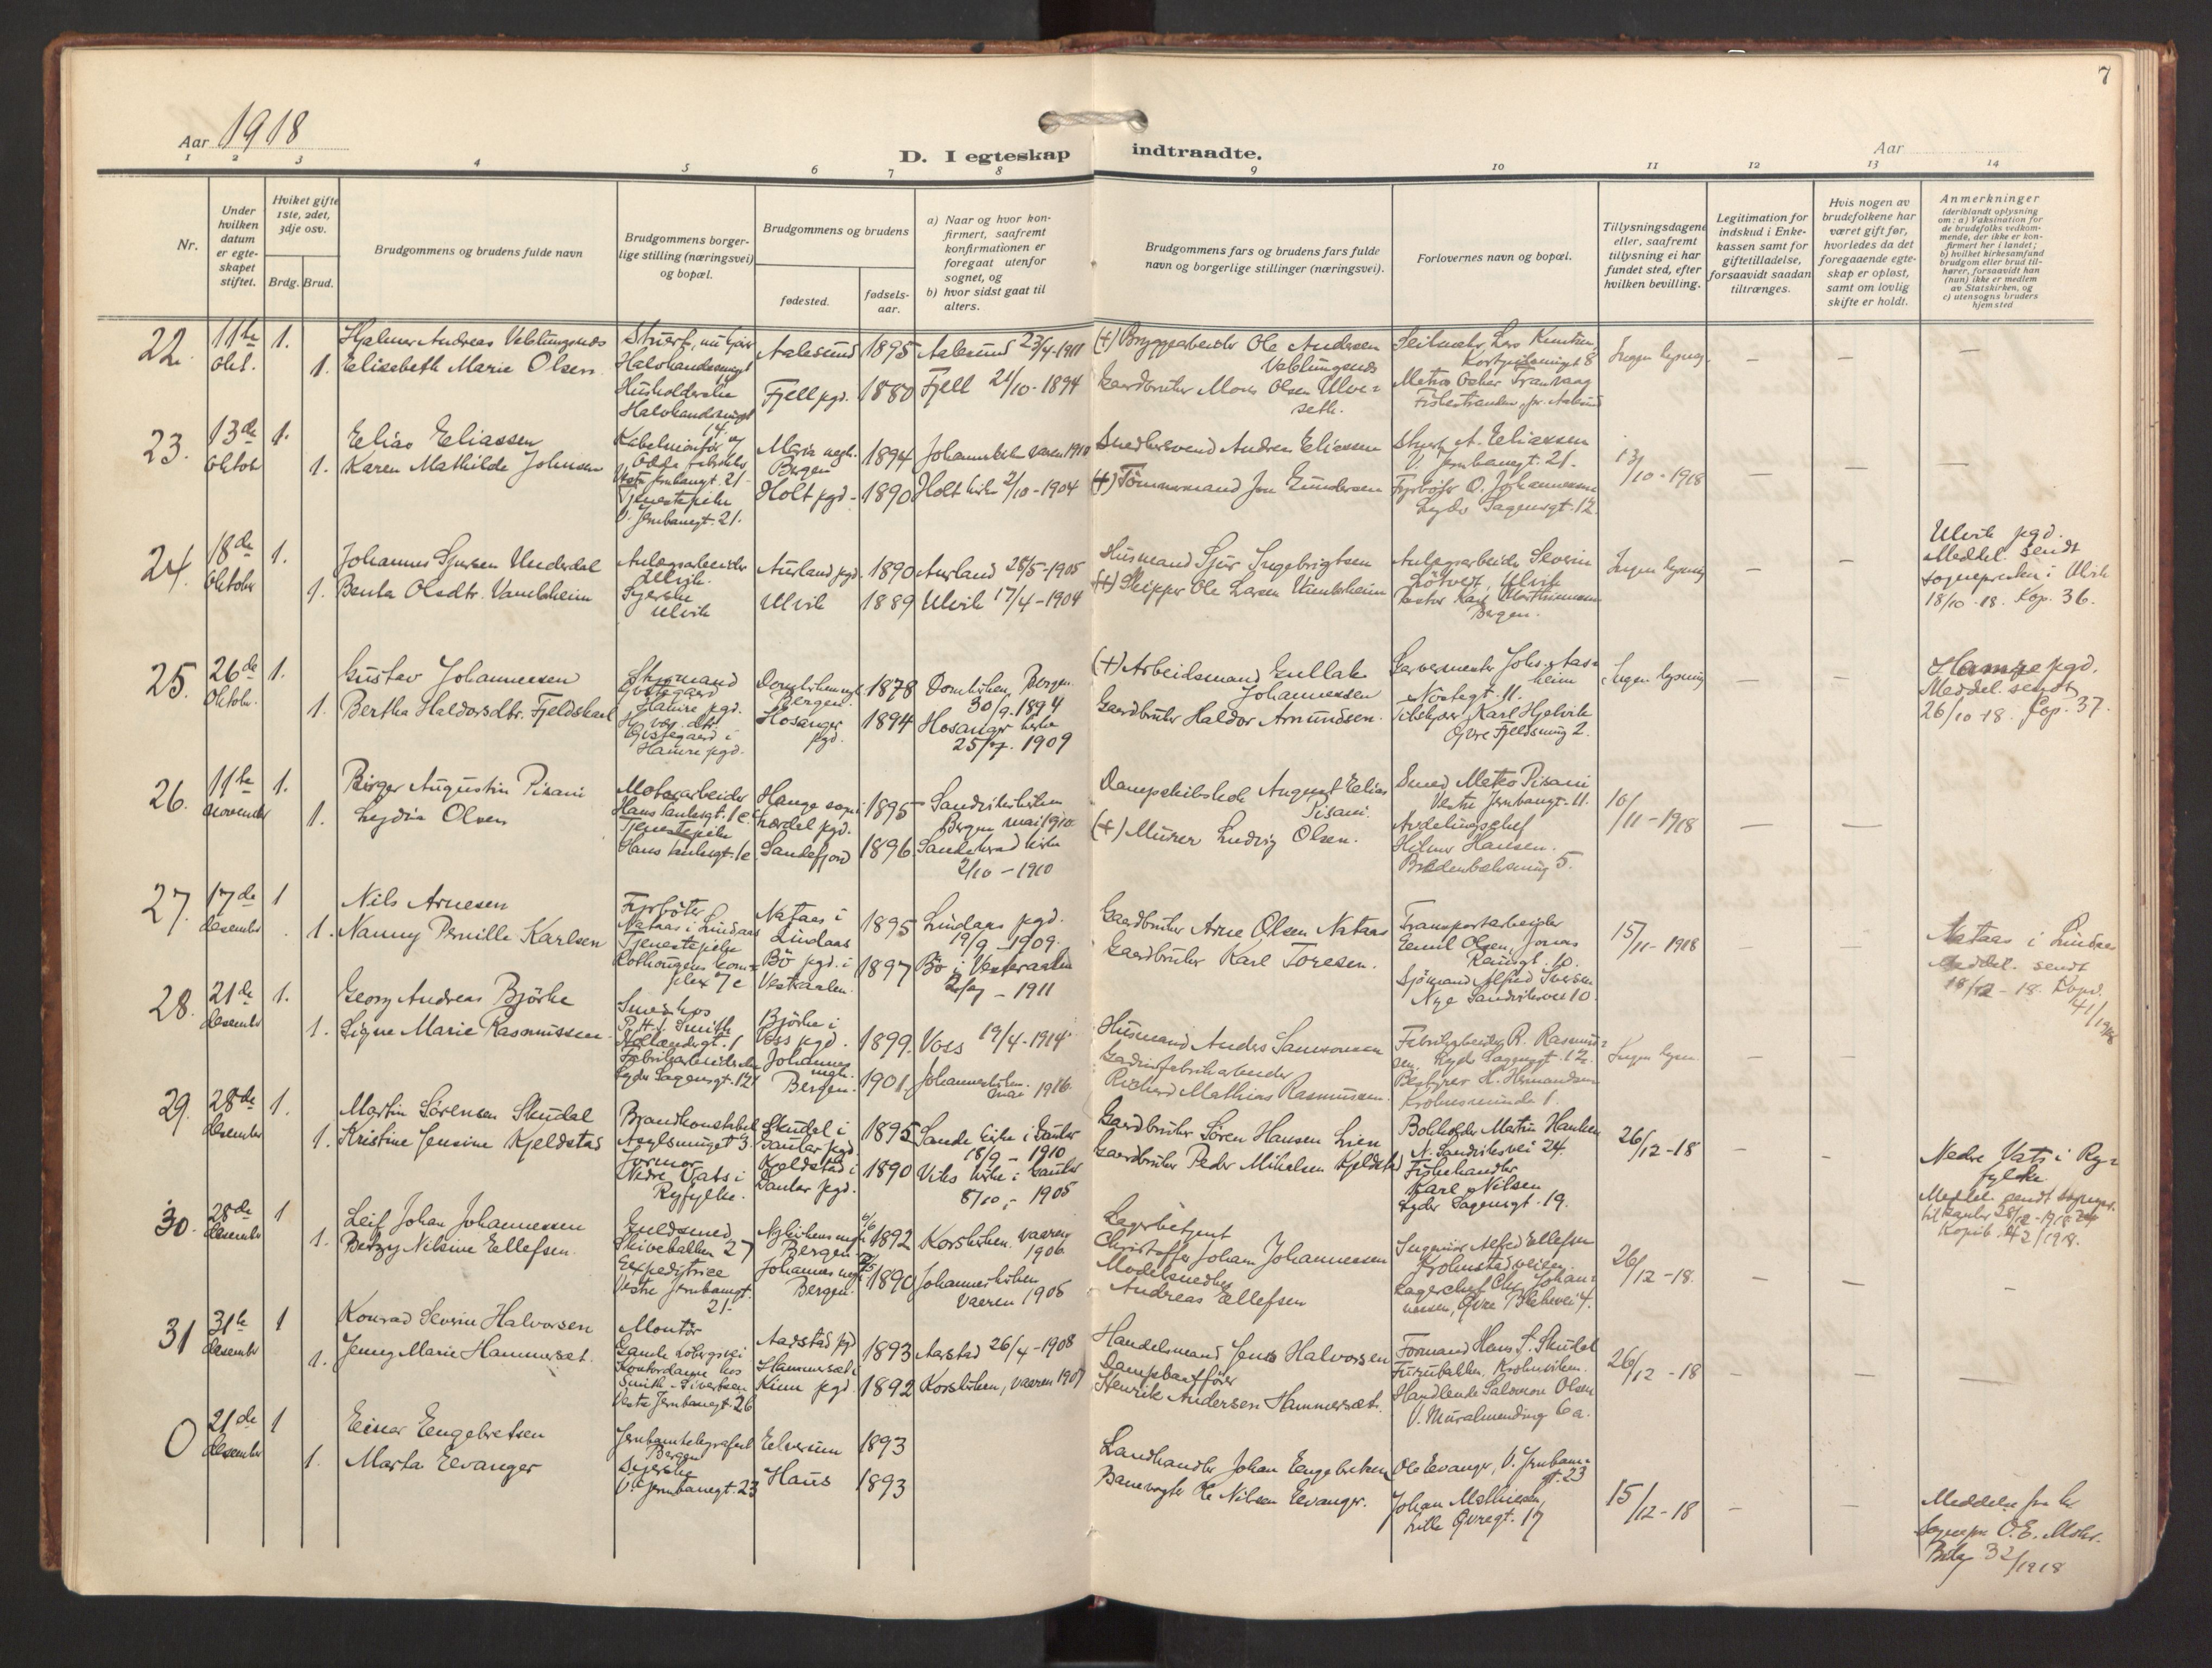 7
Aar 1918
D. I egteskap indtraadte.
Aar
1 2 3 4 5 6 7 8 9 10 11 12 13 14
Nr.
Under hvilken datum er egteskapet stiftet.
Hviket gifte 1ste, 2det, 3dje osv.
Brdg. Brud.
Brudgommens og brudens fulde navn
Brudgommens borgerlige stilling (næringsvei) og bopæl.
Brudgommens og brudens
fødested.
fødselsaar.
a) Naar og hvor konfirmert, saafremt konfirmationen er foregaat utenfor sognet, og
b) hvor sidst gaat til alters.
Brudgommens fars og brudens fars fulde navn og borgerlige stillinger (næringsvei).
Forlovernes navn og bopæl.
Tillysningsdagene eller, saafremt tillysning ei har fundet sted, efter hvilken bevilling.
Legitimation for indskud i Enkekassen samt for giftetilladelse, forsaavidt saadan tiltrænges.
Hvis nogen av brudefolkene har været gift før, hvorledes da det foregaaende egteskap er opløst, samt om lovlig skifte er holdt.
Anmerkninger
(deriblandt oplysning om: a) Vaksination for de brudefolks vedkommende, der ikke er konfirmert her i landet; b) hvilket kirkesamfund brudgom eller brud tilhører, forsaavidt han (hun) ikke er medlem av Statskirken, og c) utensogns bruders hjemsted
22. 11te okt. 1. Hjalmar Andreas
1. Elisabeth Marie Olsen
Husholderske
Aalesund 1895 Aalesund 23/4-1911
Fjell pgd. 1880 Fjell 21/10-1894
(+) Bryggearbeider Ole Andersen
Gaardbruker Mons Olsen Ulveseth.
Ingen lysning
— — —
23. 13de oktob 1. Elias Eliassen
1. Karen Mathilde Johnsen
Kabelmontør
Tjenestepike
V. Jernbanegt. 21.
Bergen 1894 Johanneskirk. vaaren 1910
Holt pgd. 1890 Holt kirke 2/10-1904
Snedkersvend Andreas Eliassen
(+) Tømmermand Jon Gundersen
Stuert A. Eliassen
V. Jernbanegt. 21.
Fyrbøter O. Johannessen
Lyder Sagensgt. 12.
13/10-1918
— — —
24. 18de oktober 1. Johannes Sjursen Underdal
1. Benta Olsdtr.
Anlægsarbeider
Ulvik.
Syerske
Ulvik
Aurland pgd. 1890 Aurland 28/5-1905
Ulvik 1889 Ulvik 17/4-1904
Husmand Sjur Ingebrigtsen
(+) Skipper Ole Larsen
Anlægsarbeider Severin
Ulvik
Bergen.
Ingen lysning
— —
Ulvik pgd.
Meddel. sendt
sognepresten i Ulvik
18/10-18. Kop. 36.
25. 26de Oktober. 1. Gustav Johannessen
1. Bertha Haldorsdtr. Fjeldskaal
Styrmand
Hamre pgd.
Hamre pgd.
Bergen. 1878 Domkirken, Bergen. 30/9.1894
Hosanger pgd. 1894 Hosanger kirke 25/7. 1909
(+) Arbeidsmand Gullak Johannessen
Gaardbruker Haldor Amundsen.
Nøstegt. 11.
Karl Hjelvik
Øvre Fjeldsmug 2.
Ingen lysning
— —
Hamre pgd.
Meddel. sendt
26/10-18. Kop. 37.
26. 11te november 1. Birger Augustin Pisani
1. Lydia Olsen
Motorarbeider
Tjenestepike
1895 Sandvikskirken Bergen mai 1910
Sandefjord 1896. Sandeherad kirke 2/10-1910
Dampskibskok August Elias Pisani.
(+) Murer Ludvig Olsen.
Smed Meteo Pisani
Vestre Jernbanegt. 11.
Avdelingschef
Hilmar Hansen.
10/11-1918
— —
27. 17de desember 1 Nils Arnesen
1. Nanny Pernille Karlsen
Fyrbøter
Nataas i Lindaas
Tjenestepike
Nataas i Lindaas 1895 Lindaas pgd. 19/9-1909.
Bø pgd. i Vesteraalen. 1897 Bø i Vesteraalen 2/7-1911
Gaardbruker Arne Olsen Nataas
Gaardbruker Karl Toresen.
Transportarbeider
Emil Olsen, Jonas
Reinsgt. 10.
Sjømand Alfred Iversen
Nye Sandviksvei 10.
15/11-1918
— —
Nataas i Lindaas
Meddel. sendt
18/12-18. Kopi.
41/1918
28. 21de desember 1. Georg Andreas Bjørke
1. Signe Marie Rasmussen
Smed hos
Fabrikarbeiderske
Lyder Sagensgt. 12
Bjørke i Voss pgd. 1899. Voss 19/4-1914
Johannes megh. Bergen. 1901. Johanneskirken. 1916.
Husmand Anders Samsonsen
Gardinfabrikarbeider
Richard Mathias Rasmussen.
Fabrikarbeider R. Rasmussen, Lyder Sagensgt. 12.
Bestyrer H. Hermandsen
Ingen lysn.
— —
29. 28de desember 1. Martin Sørensen Skudal
1. Kristine Jensine Kjeldstad
Brandkonstabel
Asylsmuget 3.
Nedre Vats i
Ryfylke.
Skudal i Gaular pgd. 1895 Sande kirke i Gaular 18/9-1910
Kjeldstad i Gaular pgd. 1890 Viks kirke i Gaular 8/10-1905
Gaardbruker Søren Hansen Lien
Gaardbruker Peder Mikelsen Kjeldstad
Bokholder Martin Hauken
N. Sandviksvei 24.
Fiskehandler
Karl Nilsen
Lyder Sagensgt. 19.
26/12-18
— —
Nedre Vats i Ryfylke
Meddel. sendt sognepr.
til Gaular 28/12-1918
Kopib. 42/1918.
30. 28de desember 1 Leif Johan Johannessen
1. Betzy Nilsine Ellefsen.
Guldsmed
Skivebakken 27
Expeditrice
Vestre Jernbanegt. 21.
Nykirkens megh. Bergen. 6/6 1892 Korskirken. vaaren 1906
Johannes megh. Bergen. 1890 Johanneskirken vaaren 1905
Lagerbetjent
Christoffer Johan Johannessen
Modelsnedker
Andreas Ellefsen
Ingeniør Alfred Ellefsen
Kronstadveien.
Lagerchef Chr. Johannessen, Øvre Blekevei 4.
26/12-18.
— — —
31 31te desember 1 Konrad Severin Halvorsen
1. Jenny Marie Hammerset.
Montør
Gamle
Kontordame hos
Smith-Sivertsen
Vestre Jernbanegt. 26
Aarstad pgd 1893 Aarstad 26/4-1908
Hammerset i Kinn pgd. 1892 Korskirken, vaaren 1907
Handelsmand Jens Halvorsen
Dampbaatfører
Henrik Andersen Hammerset.
Formand Hans S. Skudal
Furubakken, Kronviken.
Handlende Salomon Olsen
V. Muralmending 6a.
26/12-18
— — —
0 21de desember 1 Einar Engebretsen
1. Marta Evanger
Jernbanetelegrafist
Bergen
Syerske
V. Jernbanegt. 23
Elverum 1893
Haus 1893
Landhandler Johan Engebretsen
Banevogter Ole Nilsen Evanger.
Ole Evanger, V. Jernbanegt. 23
Johan Mathiesen,
Lille Øvregt. 17
15/12-18
— —
Meddelse fra hr.
Sognepr. O. E. Mohr.
Bilag 32/1918